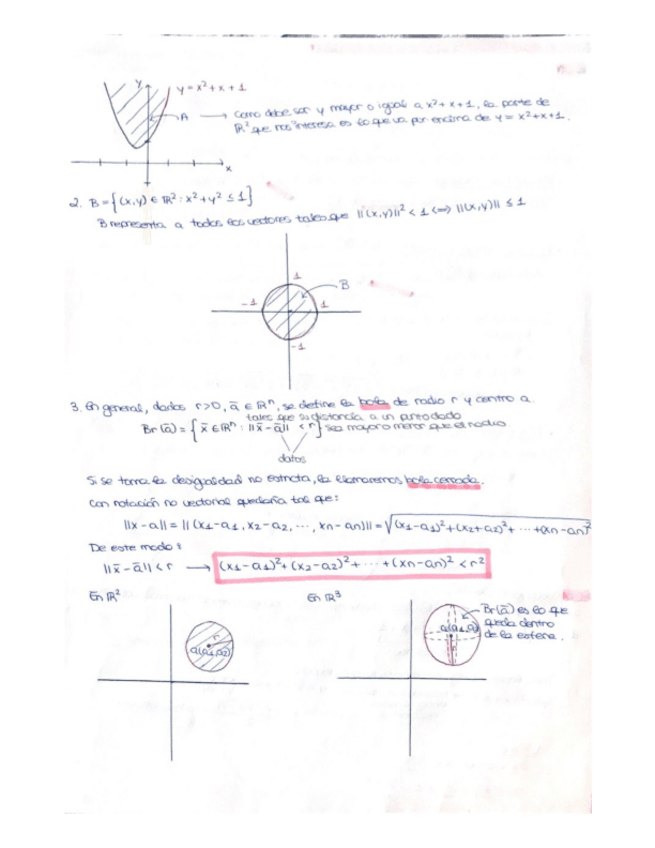 y
y = x² + x + 1
A → Como debe ser y mayor o igual a x² + x + 1, la parte de
ℝ² que nos interesa es lo que va por encima de y = x² + x + 1.
x
2. B = {(x,y) ∈ ℝ² : x² + y² ≤ 1}
B representa a todos los vectores tales que ||(x,y)||² < 1 ⟺ ||(x,y)|| ≤ 1
1
B
-1
1
-1
3. En general, dados r>0, ā ∈ ℝⁿ, se define la bola de radio r y centro a
tales que su distancia a un punto dado
Br(ā) = {x̄ ∈ ℝⁿ : ||x̄ - ā|| < r} sea mayor o menor que el radio
datos
Si se toma la desigualdad no estricta, la llamaremos bola cerrada.
Con notación no vectorial quedaría tal que:
||x - a|| = ||(x1 - a1, x2 - a2, ..., xn - an)|| = √(x1 - a1)² + (x2 + a2)² + ... + (xn - an)²
De este modo:
||x̄ - ā|| < r → (x1 - a1)² + (x2 - a2)² + ... + (xn - an)² < r²
En ℝ²
En ℝ³
r
a(a1,a2)
Br(ā) es lo que
queda dentro
de la esfera.
r